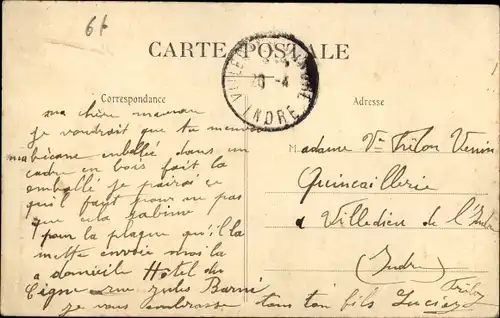 61
CARTE POSTALE
20 - 4
INDRE
Correspondance
Adresse
ma chère maman
je voudrait que tu m'envoie
ma bécane emballée dans un
cadre en bois fait la
emballé je pairai ce
qu'il faut pour ne pas
que cela
pour la plaque qu'il la
mette envoie moi la
a domicile Hôtel du
Cigne rue Jules Barni
je vous embrasse ton fils Lucien
Madame Vve Trélou Venin
Quincaillerie
a Villedieu de l'Indre
(Indre)